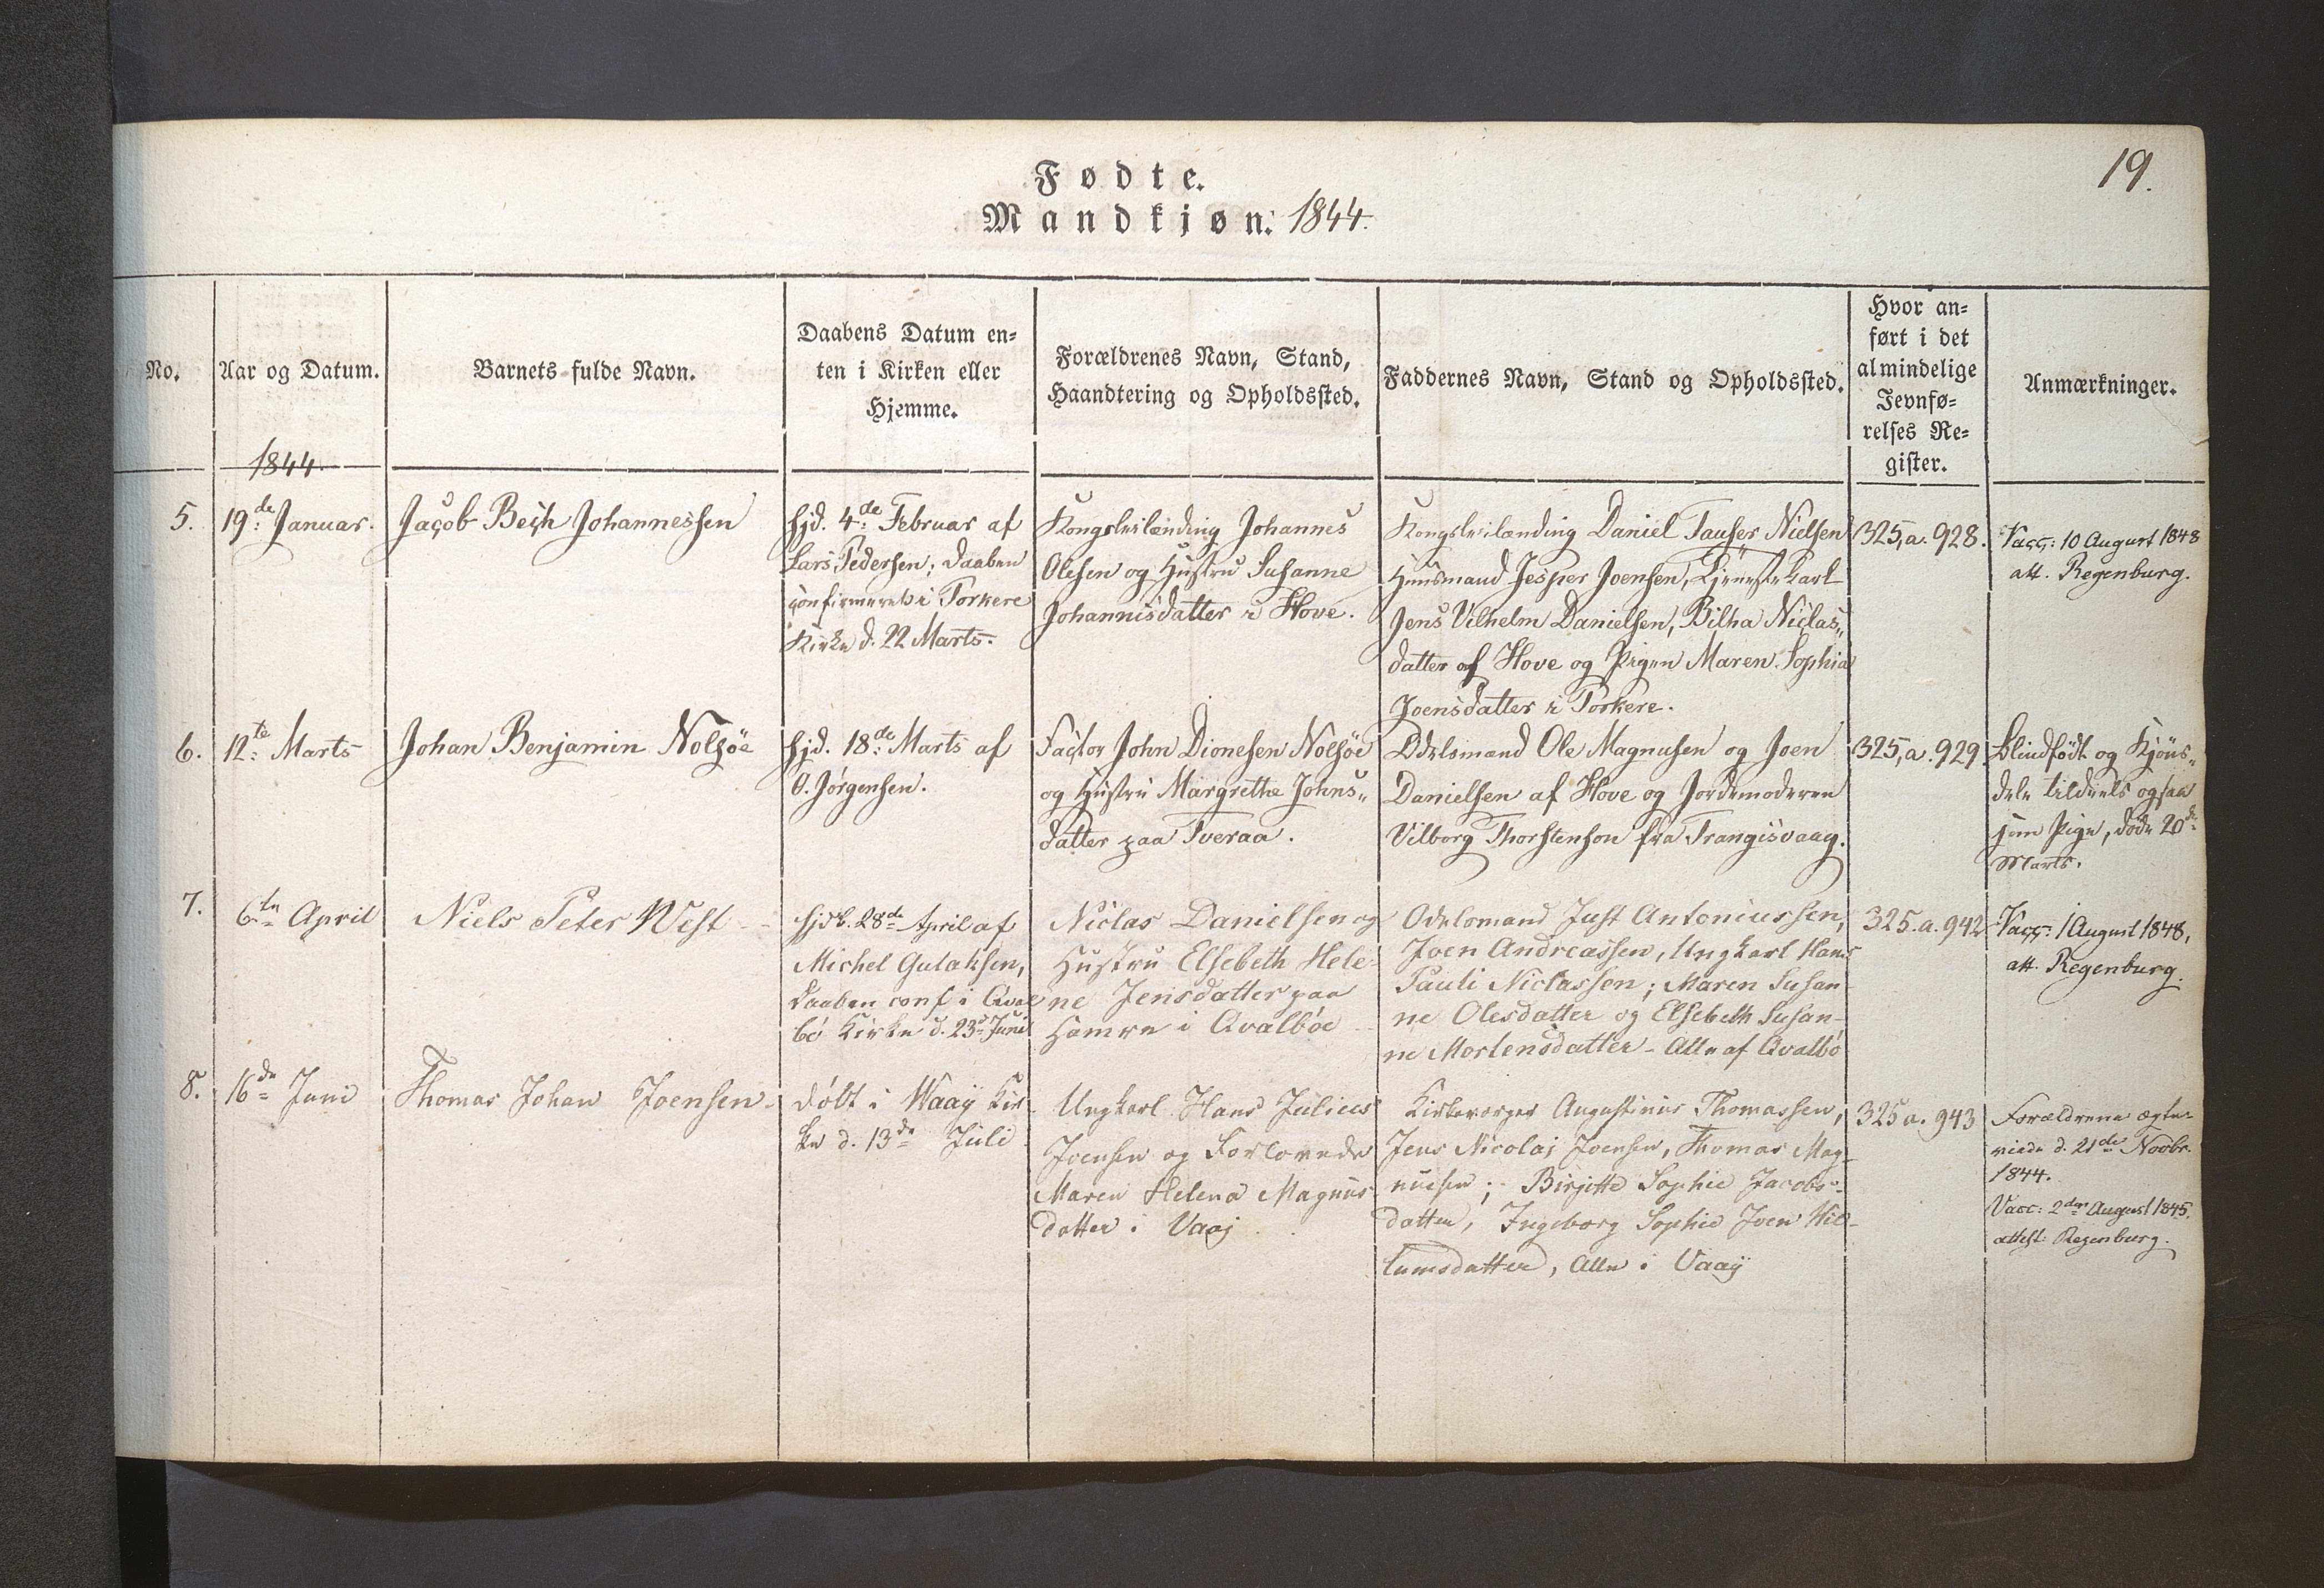 19.
Fødte.
Mandkjøn: 1844.
No.
Aar og Datum.
Barnets fulde Navn.
Daabens Datum en-
ten i Kirken eller
Hjemme.
Forældrenes Navn, Stand,
Haandtering og Opholdssted.
Faddernes Navn, Stand og Opholdssted.
Hvor an-
ført i det
almindelige
Jevnfø-
relses Re-
gister.
Anmærkninger.
1844.
5.
19de Januar.
Jacob Bech Johannessen
hjd. 4de Februar af
Lars Pedersen; Daaben
confirmeret i Porkere
Kirke d. 22 Marts.
Kongsleilænding Johannes
Olesen og Hustru Susanne
Johannisdatter i Hove.
Kongsleilænding Daniel Tauser Nielsen
Huusmand Jesper Joensen, Tjenestekarl
Jens Vilhelm Danielsen, Bilha Niclas„
datter af Hove og Pigen Maren Sophia
Joensdatter i Porkere.
325,a.928.
Vacc: 10 August 1848
att. Regenburg.
6.
12te Marts
Johan Benjamin Nolsøe
hjd. 18de Marts af
O. Jørgensen.
Factor John Dionesen Nolsøe
og Hustru Margrethe Johns„
datter paa Tveraa.
Odelsmand Ole Magnusen og Joen
Danielsen af Hove og Jordemoderen
Vilborg Thorstenson fra Trangisvaag.
325,a.929.
Blindfødt og Kjøns„
dele tildeels ogsaa
som Pige, døde 20de
Marts.
7.
6te April
Niels Peter West
hjdb. 28de April af
Michel Gulaksen,
Daaben conf i Qval
bø Kirke d. 23de Juni
Niclas Danielsen og
Hustru Elsebeth Hele-
ne Jensdatter paa
Hamre i Qvalbøe
Odelsmand Just Antoniussen,
Joen Andreassen, Ungkarl Hans
Pauli Niclassen; Maren Susan-
ne Olesdatter og Elsebeth Susan-
ne Mortensdatter - Alle af Qvalbø
325.a.942
Vacc: 1 August 1848,
att. Regenburg.
8.
16de Juni
Thomas Johan Joensen
døbt i Waag Kir-
ke d. 13de Juli.
Ungkarl Hans Julius
Joensen og Forlovede
Maren Helena Magnus
datter i Vaag
Kirkeværger Augustinus Thomassen,
Jens Nicolaj Joensen, Thomas Mag-
nussen; Birgitte Sophie Jacobs-
datter, Ingeborg Sophie Joen Wil-
lumsdatter, Alle i Vaag
325a.943
Forældrene ægte-
viede d. 21de Novbr.
1844.
Vacc: 2den August 1845.
attest: Regenburg.